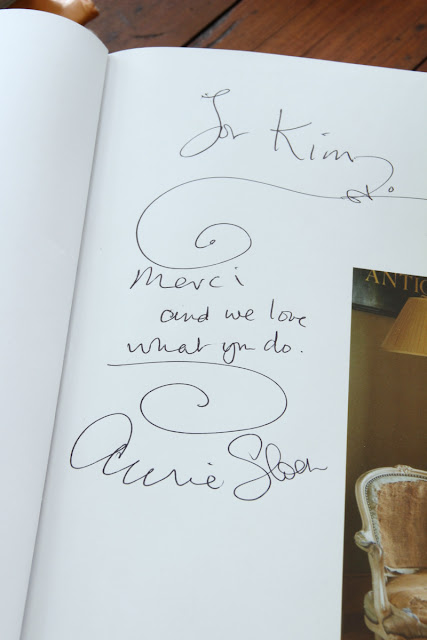 for Kim
Merci
and we love
what you do.
Annie Sloan
ANTIQ